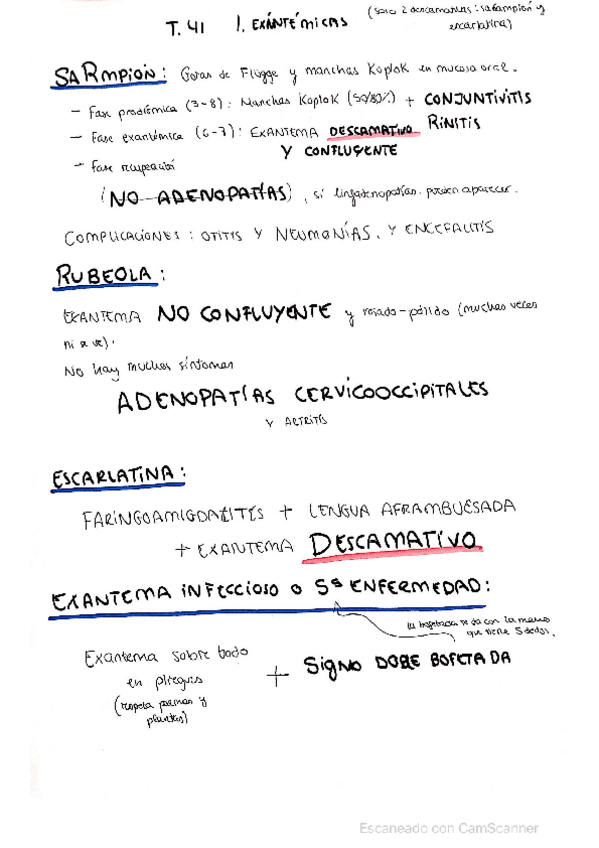 T. 41 I. EXANTÉMICAS (solo 2 descamantes: sarampión y
escarlatina)
SARMPIÓN: Gotas de Flügge y manchas Koplok en mucosa oral.
- Fase prodrómica (3-8): Manchas Koplok (50/80%) + CONJUNTIVITIS
RINITIS
- Fase exantémica (6-7): EXANTEMA DESCAMATIVO
Y CONFLUYENTE
- Fase recuperación
(NO ADENOPATÍAS), sí linfadenopatías. pueden aparecer.
COMPLICACIONES: OTITIS Y NEUMONÍAS. Y ENCEFALITIS
RUBEOLA:
EXANTEMA NO CONFLUYENTE y rosado-pálido (muchas veces
ni se ve).
No hay muchos síntomas
ADENOPATÍAS CERVICOOCCIPITALES
Y ARTRITIS
ESCARLATINA:
FARINGOAMIGDALITIS + LENGUA AFRAMBUESADA
+ EXANTEMA DESCAMATIVO
EXANTEMA INFECCIOSO O 5ª ENFERMEDAD:
la se da con la mano
que tiene 5 dedos.
Exantema sobre todo
en pliegues
(respeta palmas y
plantas)
+ SIGNO DOBLE BOFETADA
Escaneado con CamScanner